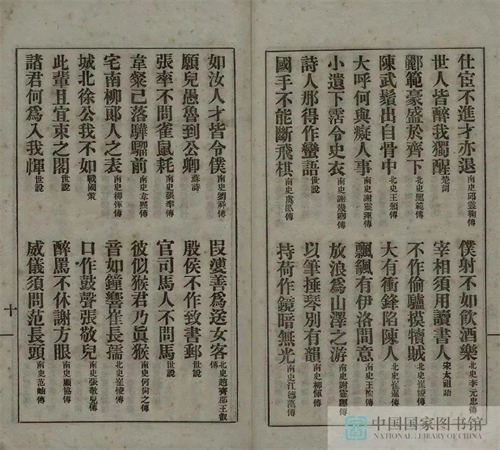 仕宦不進才亦退 南史邱靈鞠傳 僕射不如飲酒樂 北史李元忠傳
世人皆醉我獨醒 楚詞 宰相須用讀書人 宋太祖語
酈範豪盛於齊下 北史酈範傳 不作偷驢摸犢賊 北史崔㥄傳
陳武鬚出自骨中 北史王頒傳 大有衝鋒陷陳人 北史
大呼何與癡人事 南史謝靈運傳 飄飄有伊洛間意 南史
小遺下霑令史衣 南史謝幾卿傳 放浪爲山澤之游 南史謝靈運傳
詩人那得作蠻語 世說 以筆捶琴別有韻 南史柳惲傳
國手不能斷飛棋 南史虞愿傳 持荷作鏡暗無光 南史江德藻傳
如汝人才皆令僕 南史 叚婆善爲送女客 北史趙齊郡王叡
願兒愚魯到公卿 蘇詩 殷侯不作致書郵 世說
張率不問雀鼠耗 南史張率傳 官司馬人不問馬 世說
韋粲已落驊騮前 南史韋粲傳 彼似猴君乃眞猴 南史何尚之傳
宅南柳郞人之表 南史柳惲傳 音如鐘響崔長孺 北史崔㥄傳
城北徐公我不如 戰國策 口作鼓聲張敬兒 南史張敬兒傳
此輩且宜束之閣 世說 醉罵不休謝方眼 南史顧協傳
諸君何爲入我褌 世說 威儀須問范長頭 南史范岫傳
十
中国国家图书馆
NATIONAL LIBRARY OF CHINA